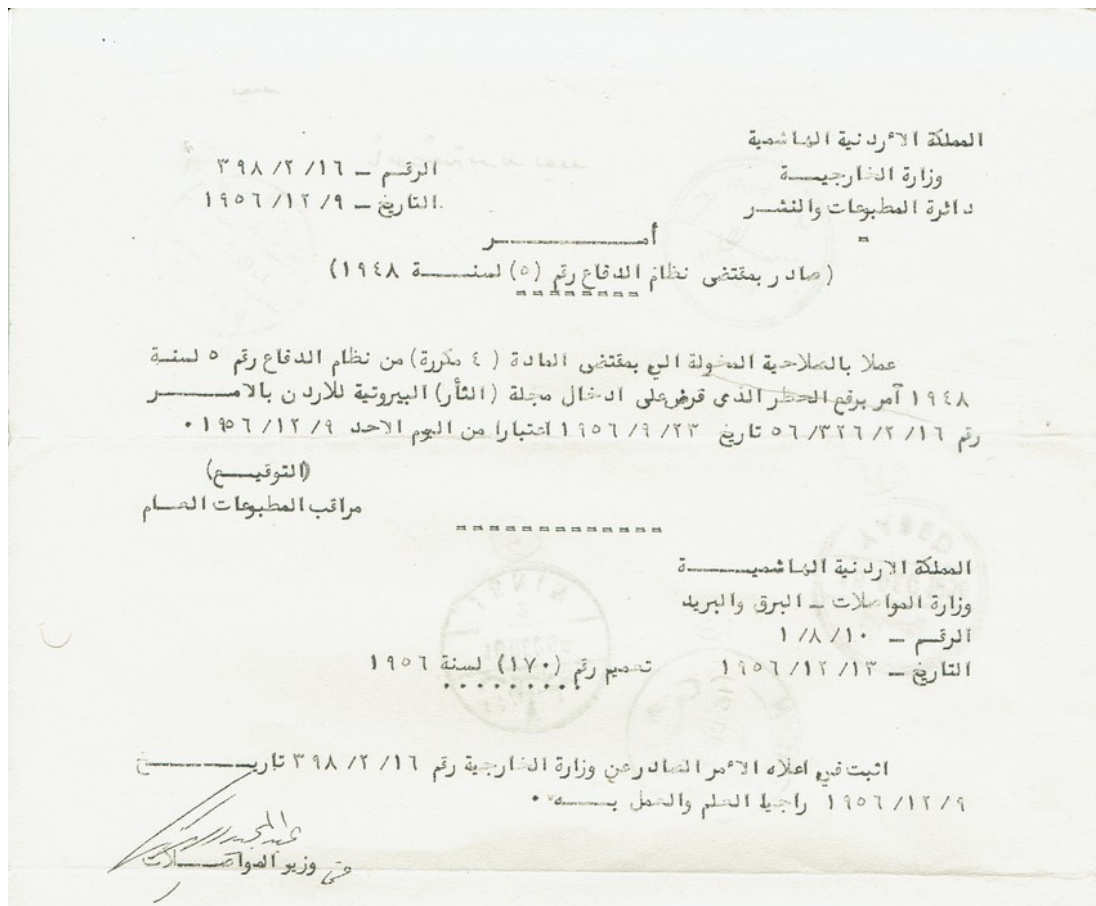 المملكة الأردنية الهاشمية
وزارة الخارجيـــة
دائرة المطبوعات والنشـــر
الرقـم ـ ٣٩٨/٢/١٦
التاريخ ـ ١٩٥٦/١٢/٩
أمــــــــــر
(صادر بمقتضى نظام الدفاع رقم (٥) لسنـــــة ١٩٤٨)
عملا بالصلاحية المخولة الي بمقتضى المادة (٤ مكررة) من نظام الدفاع رقم ٥ لسنـة
١٩٤٨ آمر برفع الحظر الذى فرض على ادخال مجلة (الثأر) البيروتية للاردن بالامــــــر
رقم ٥٦/٣٢٦/٢/١٦ تاريخ ١٩٥٦/٩/٢٣ اعتبارا من اليوم الاحد ١٩٥٦/١٢/٩ .
(التوقيـــع)
مراقب المطبوعات العــام
المملكة الاردنية الهاشميـــــــة
وزارة المواصلات ـ البرق والبريد
الرقــم ـ ١/٨/١٠
التاريخ ـ ١٩٥٦/١٢/١٣ تعميم رقم (١٧٠) لسنة ١٩٥٦
اثبت في اعلاه الأمر الصادر عن وزارة الخارجية رقم ٣٩٨/٢/١٦ تاريـــــــــــخ
١٩٥٦/١٢/٩ راجيا العلم والعمل بــــه .
وزير المواصـــــلات